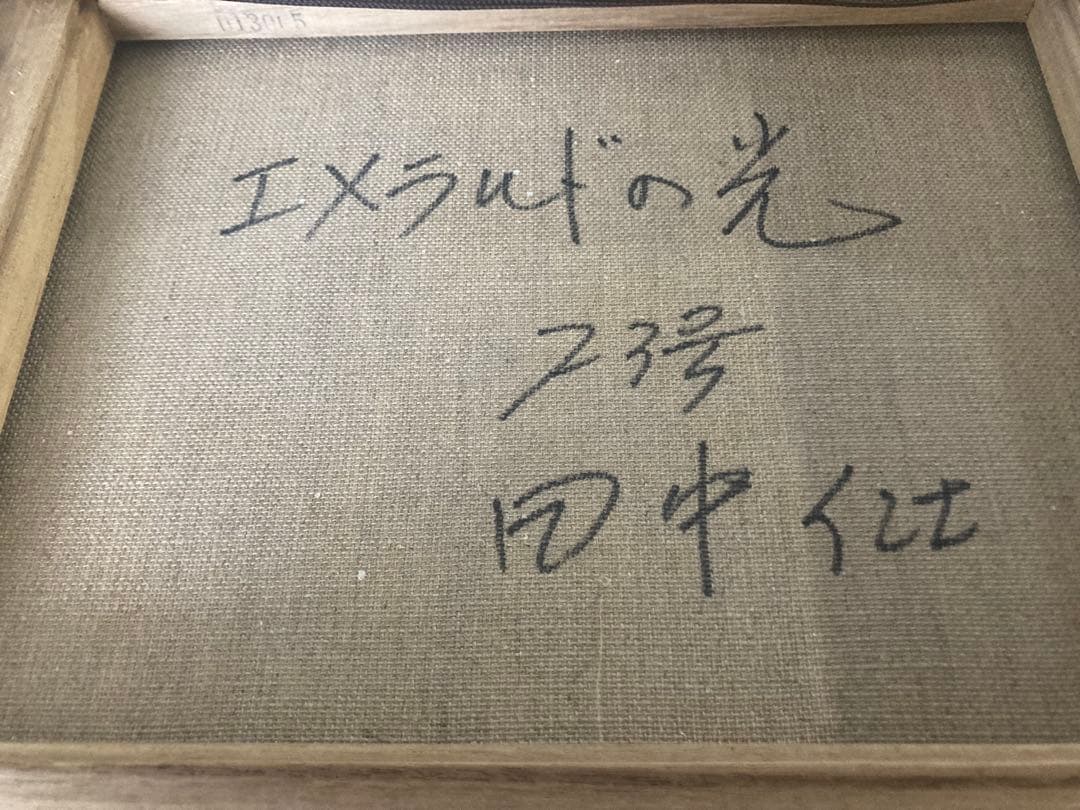 エメラルドの光
F3号
田中